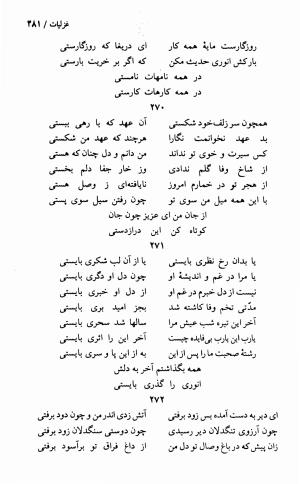 غزلیات / ۴۸۱
روزگارست مایهٔ همه کار ای دریغا که روزگارستی
بارکش انوری حدیث مکن که اگر بر خریت بارستی
در همه نامهات نامستی
در همه کارهات کارستی
۲۷۰
همچون سر زلف خود شکستی آن عهد که با رهی ببستی
بد عهد نخوانمت نگارا هرچند که عهد من شکستی
کس سیرت و خوی تو نداند من دانم و دل چنان که هستی
از شاخ وفا گلم ندادی وز خار جفا دلم بخستی
از هجر تو در خمارم امروز نایافته‌ای ز وصل هستی
با این همه میل من سوی تو چون رفتن سیل سوی پستی
از جان من ای عزیز چون جان
کوتاه کن این درازدستی
۲۷۱
یا بدان رخ نظری بایستی یا از آن لب شکری بایستی
یا مرا در غم و اندیشهٔ او چون دل او دگری بایستی
نیست از دل خبرم در غم او از دل او خبری بایستی
مدّتی تخم وفا کاشته شد بجز امید بری بایستی
آخر این تیره شب عیش مرا سالها شد سحری بایستی
یارب این یارب بی‌فایده چیست آخر این را اثری بایستی
رشتهٔ صحبت ما را پس از این به از این پا و سری بایستی
همه بگذاشتم آخر به دلش
انوری را گذری بایستی
۲۷۲
ای دیر به دست آمده بس زود برفتی آتش زدی اندر من و چون دود برفتی
چون آرزوی تنگدلان دیر رسیدی چون دوستی سنگدلان زود برفتی
زان پیش که در باغ وصال تو دل من از داغ فراق تو برآسود برفتی